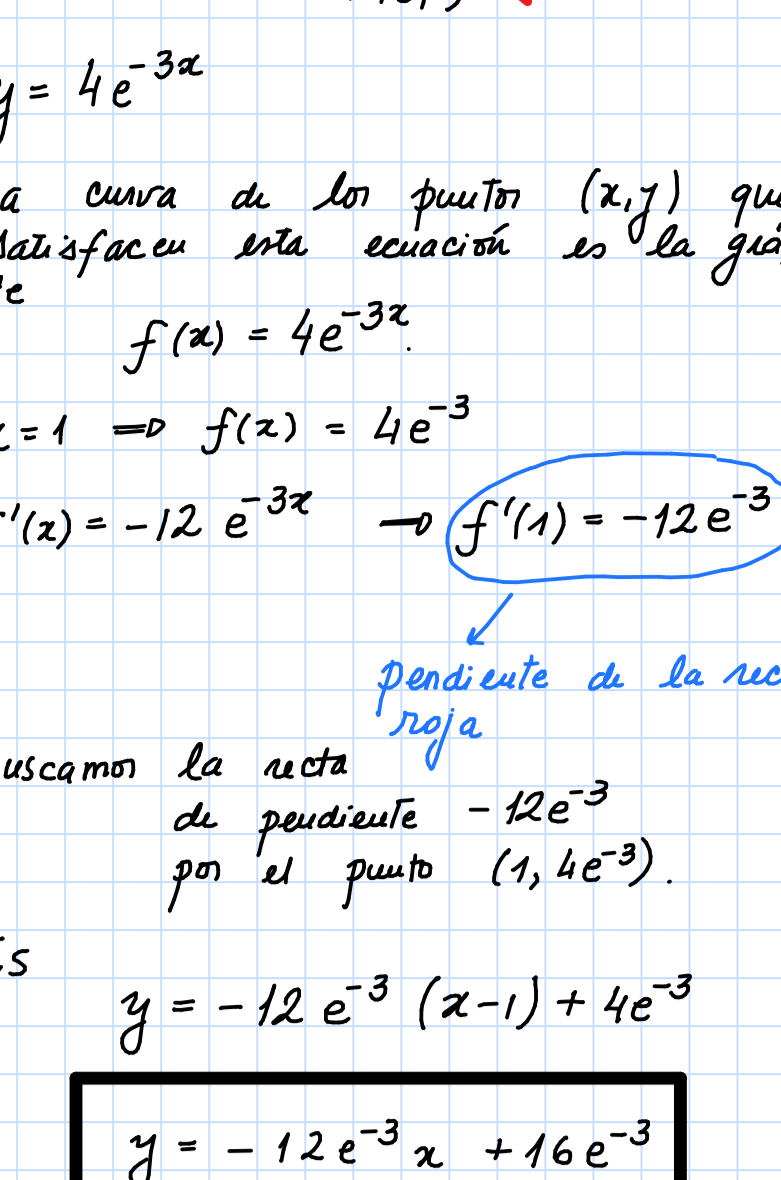 y = 4e^{-3x}
a curva de los puntos (x,y) qu
satisfacen esta ecuación es la grá
e
f(x) = 4e^{-3x}.
x=1 ⇒ f(x) = 4e^{-3}
'(x) = -12 e^{-3x} → f'(1) = -12e^{-3}
pendiente de la rec
roja
uscamos la recta
de pendiente -12e^{-3}
por el punto (1, 4e^{-3}).
s
y = -12 e^{-3} (x-1) + 4e^{-3}
y = -12e^{-3} x +16e^{-3}